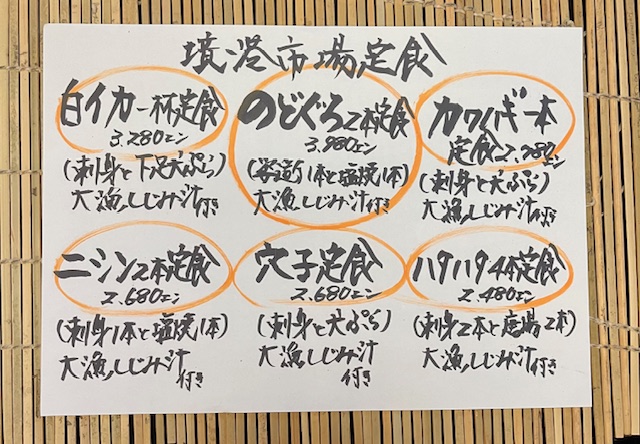 境港市場定食
白イカ一杯定食
3.280エン
(刺身と下足天ぷら)
大漁しじみ汁付き
のどぐろ2本定食
3.980エン
(姿造り1本と塩焼1本)
大漁しじみ汁付き
カワハギ一本
定食2.780エン
(刺身と天ぷら)
大漁しじみ汁付き
ニシン2本定食
2.680エン
(刺身1本と塩焼1本)
大漁しじみ汁
付き
穴子定食
2.680エン
(刺身と天ぷら)
大漁しじみ汁
付き
ハタハタ4本定食
2.480エン
(刺身2本と唐揚2本)
大漁しじみ汁付き